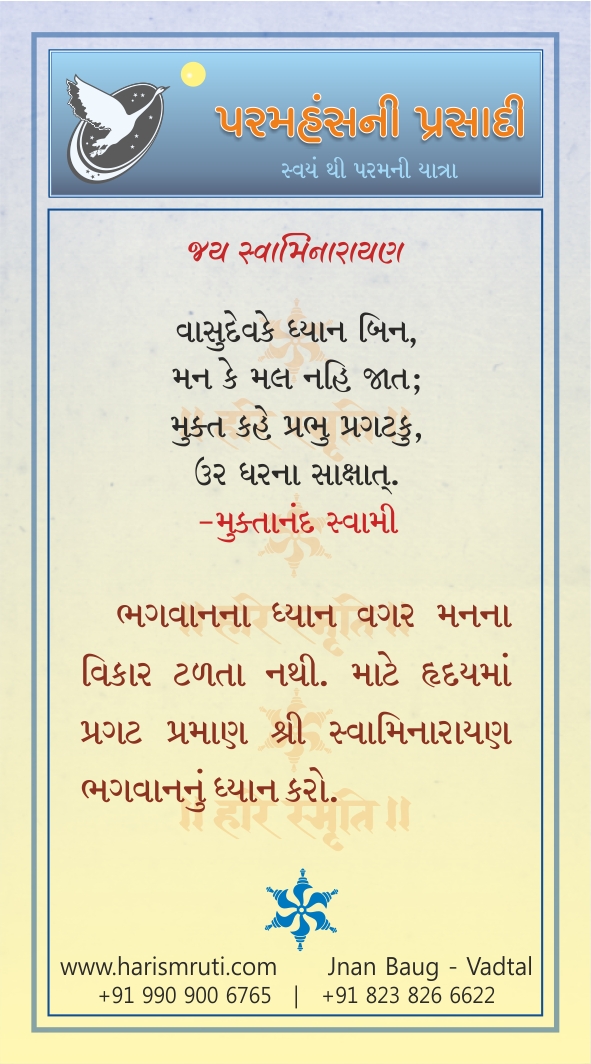 પરમહંસની પ્રસાદી
સ્વયં થી પરમની યાત્રા
જય સ્વામિનારાયણ
વાસુદેવકે ધ્યાન બિન,
મન કે મલ નહિ જાત;
મુક્ત કહે પ્રભુ પ્રગટકુ,
ઉર ધરના સાક્ષાત્.
-મુક્તાનંદ સ્વામી
ભગવાનના ધ્યાન વગર મનના
વિકાર ટળતા નથી. માટે હૃદયમાં
પ્રગટ પ્રમાણ શ્રી સ્વામિનારાયણ
ભગવાનનું ધ્યાન કરો.
|| हरि स्मृति ||
www.harismruti.com Jnan Baug - Vadtal
+91 990 900 6765 | +91 823 826 6622